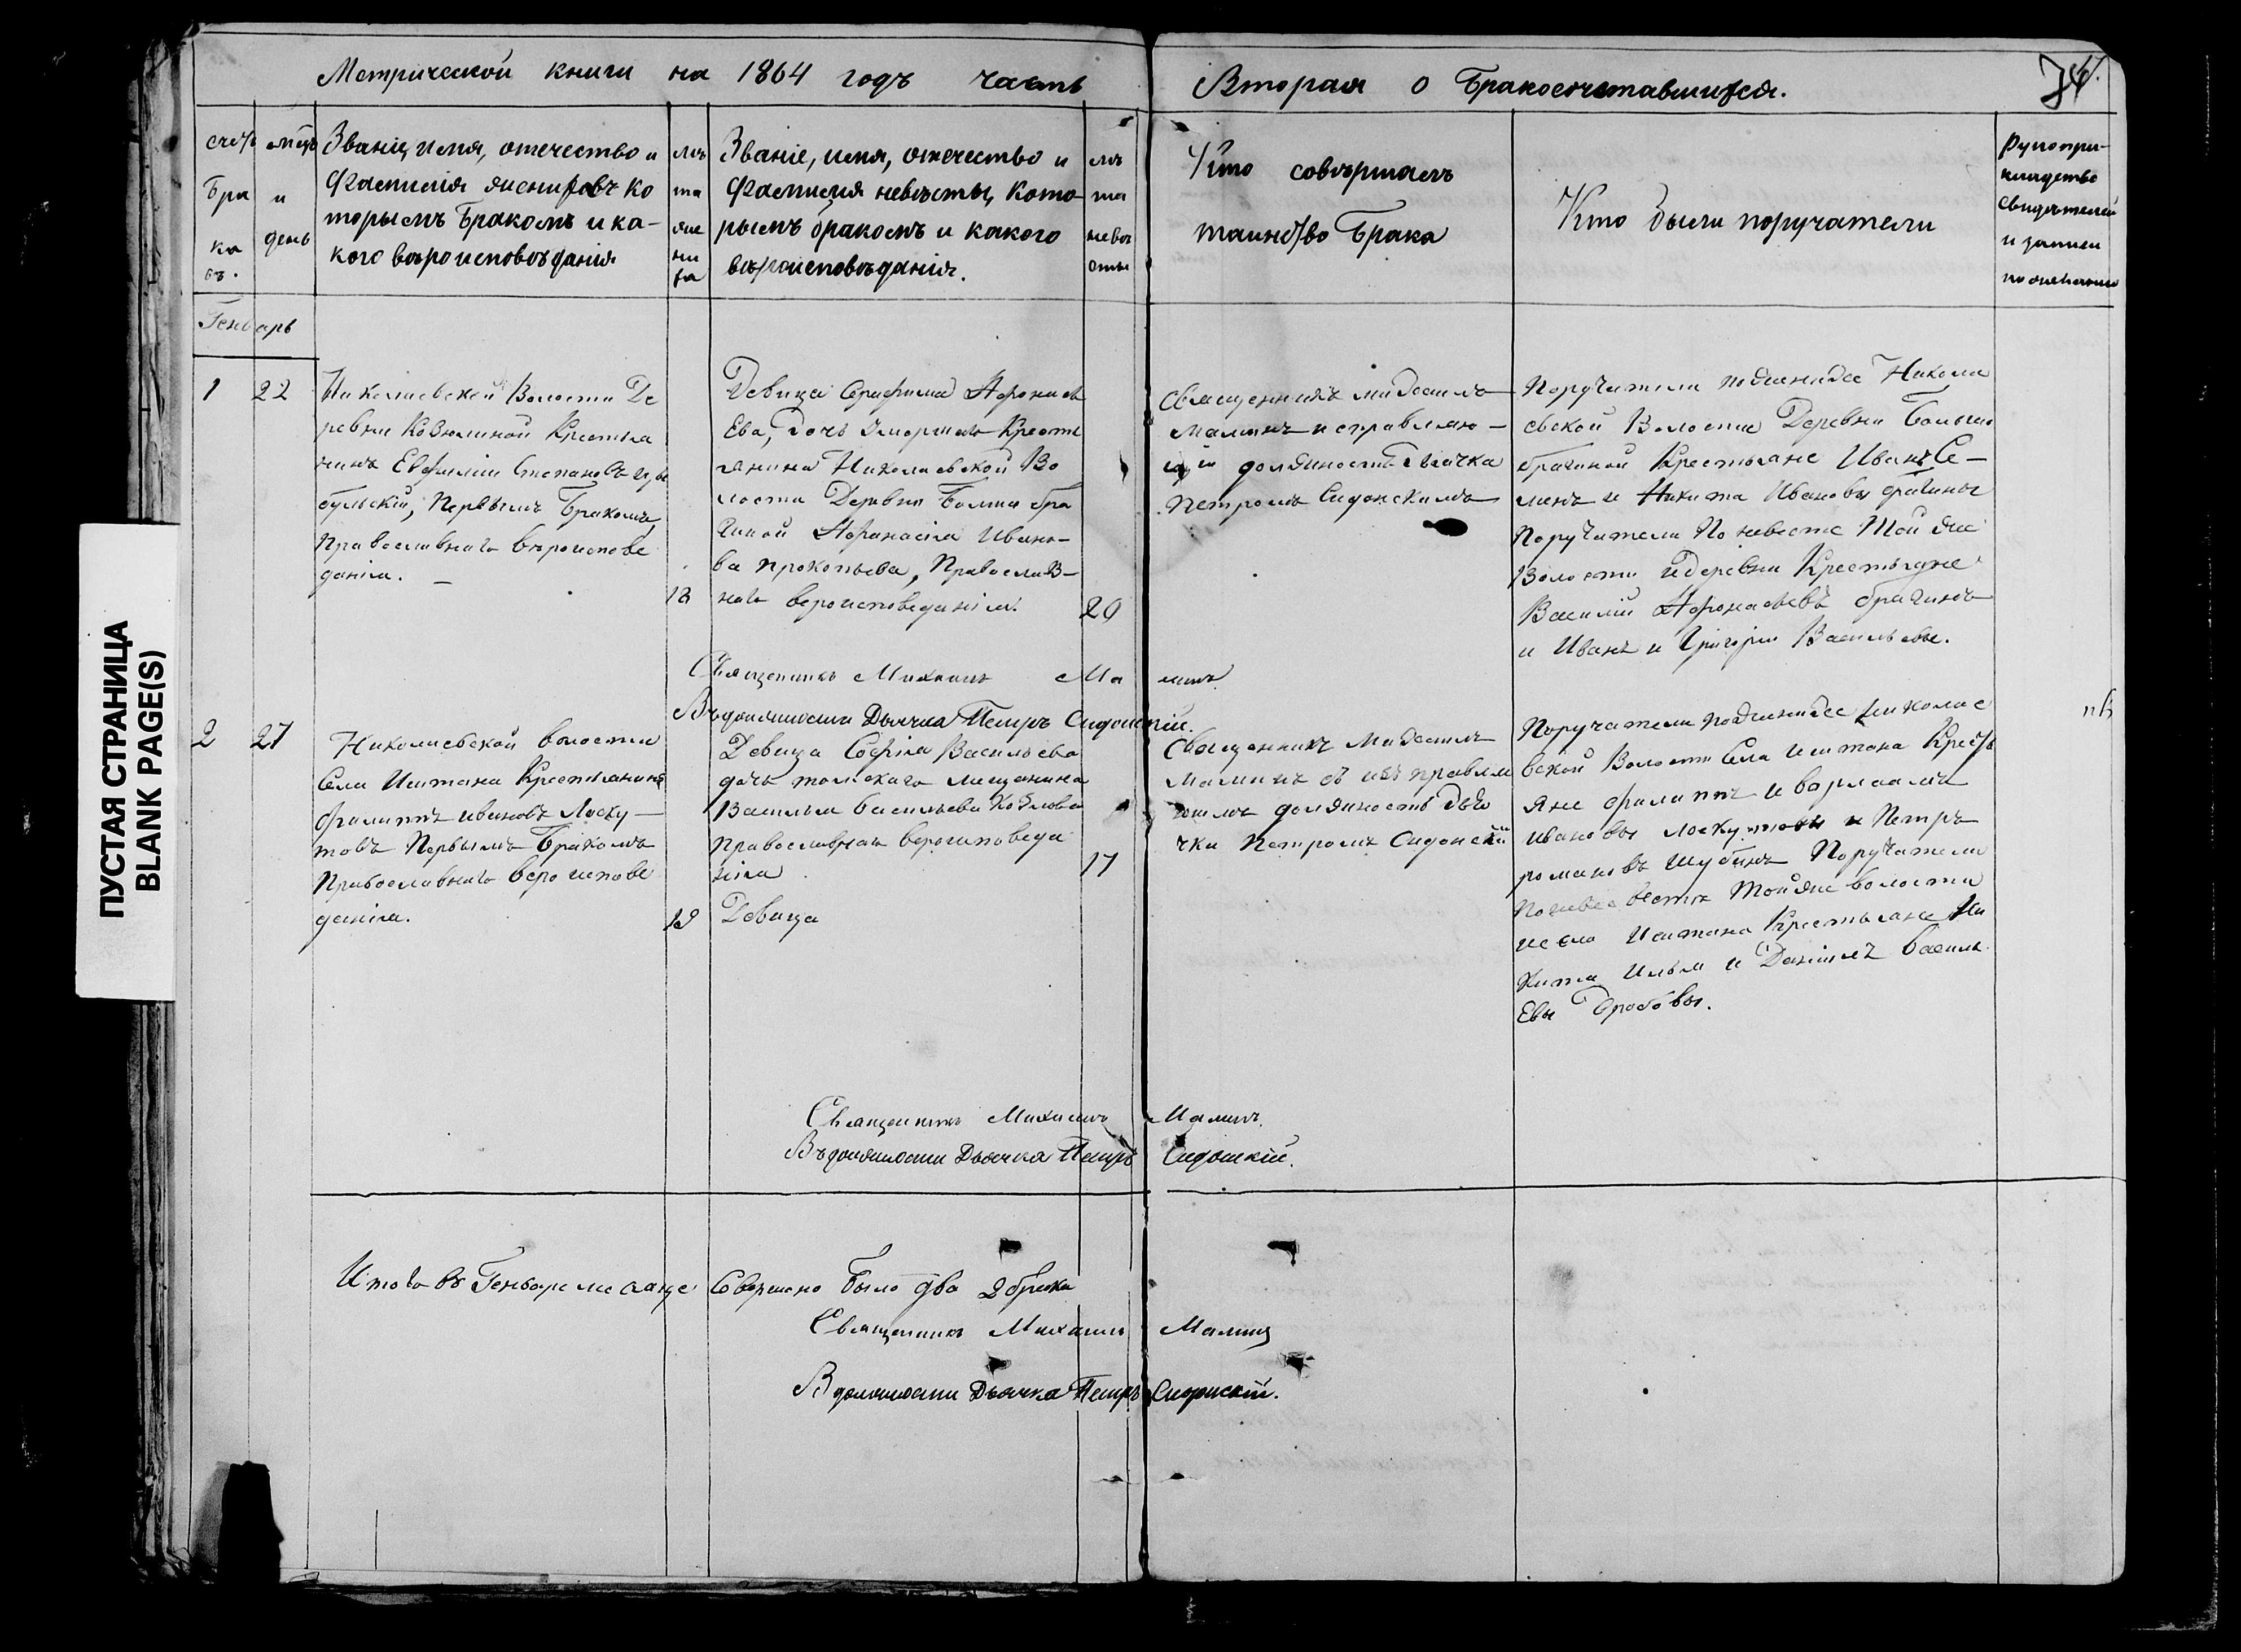 Метрической книги на 1864 годъ часть
Вторая о Бракосочетавшихся.
74.
счетъ
Бра
ка
въ.
мѣцъ
и
день
Званіе, имя, отечество и
Фамилія жениховъ ко
торымъ бракомъ и ка-
кого вѣроисповѣданія
лѣ
та
же
ни
ха
Званіе, имя, отечество и
Фамилия невѣсты, кото
рымъ бракомъ и какого
вѣроисповѣданія.
лѣ
та
невѣ
сты
Кто совѣршалъ
таинство Брака
Кто были поручатели
Рукопри-
кладство
свидѣтелей
и записи
по желанію
Генварь
1
22
Николаевской Волости Де
ревни Ковзюлиной Крестья
нинъ Евфимій Степановъ
Первымъ Бракомъ,
Православнаго вѣроиспове
данія.
18
Девица Серафима Афонась
Ева, дочь умершаго Крестъ
янина Николаевской Во
лости Деревни Больши бра
гиной Афанасія Ивано-
ва Прокопьева, Православ-
наго вероисповеданія.
20
Священникъ Михаилъ
Малинъ исправляю-
щій должность Дьячка
Петромъ Сидонскимъ
Поручители по женихѣ Никола
евской Волости Деревни Больши
брагиной Крестьяне Иванъ Се-
менъ и Никита Ивановы брагины
Поручители По невестѣ Той же
Волости и деревни Крестьяне
Василій Афонасьевъ брагинъ
и Иванъ и Григорій Васильевы.
Священникъ Михаилъ Малинъ.
Въ должности Дьячка Петръ Сидонскій.
2
27
Николаевской волости
Села Иштана Крестьянинъ
филиппъ ивановъ Лоску-
товъ Первымъ Бракомъ
Православнаго вероиспове
данія.
19
Девица Софія Васильева
дочь томскаго мещанина
Василья Васильева Козлова
православнаго вероисповеда
нія
Девица
17
Священникъ Михаилъ
Малинъ съ исправля
ющимъ должность Дья
чка Петромъ Сидонскій
Поручатели по женихѣ Николае
вской Волости Села Иштана Кресть
яне филиппъ и варлаамъ
ивановы лоскутовы и Петръ
романовъ Шубинъ Поручатели
По невестѣ Той же волости
и села Иштана Крестьяне Ни
кита Илья и Даніилъ василь
Евы Дробовы.
Священникъ Михаилъ Малинъ.
Въ должности Дьячка Петръ Сидонскій.
Итого въ Генваре месяце Совершено было два 2 брака
Священникъ Михаилъ Малинъ
В должности Дьячка Петръ Сидонскій.
ПУСТАЯ СТРАНИЦА
BLANK PAGE(S)